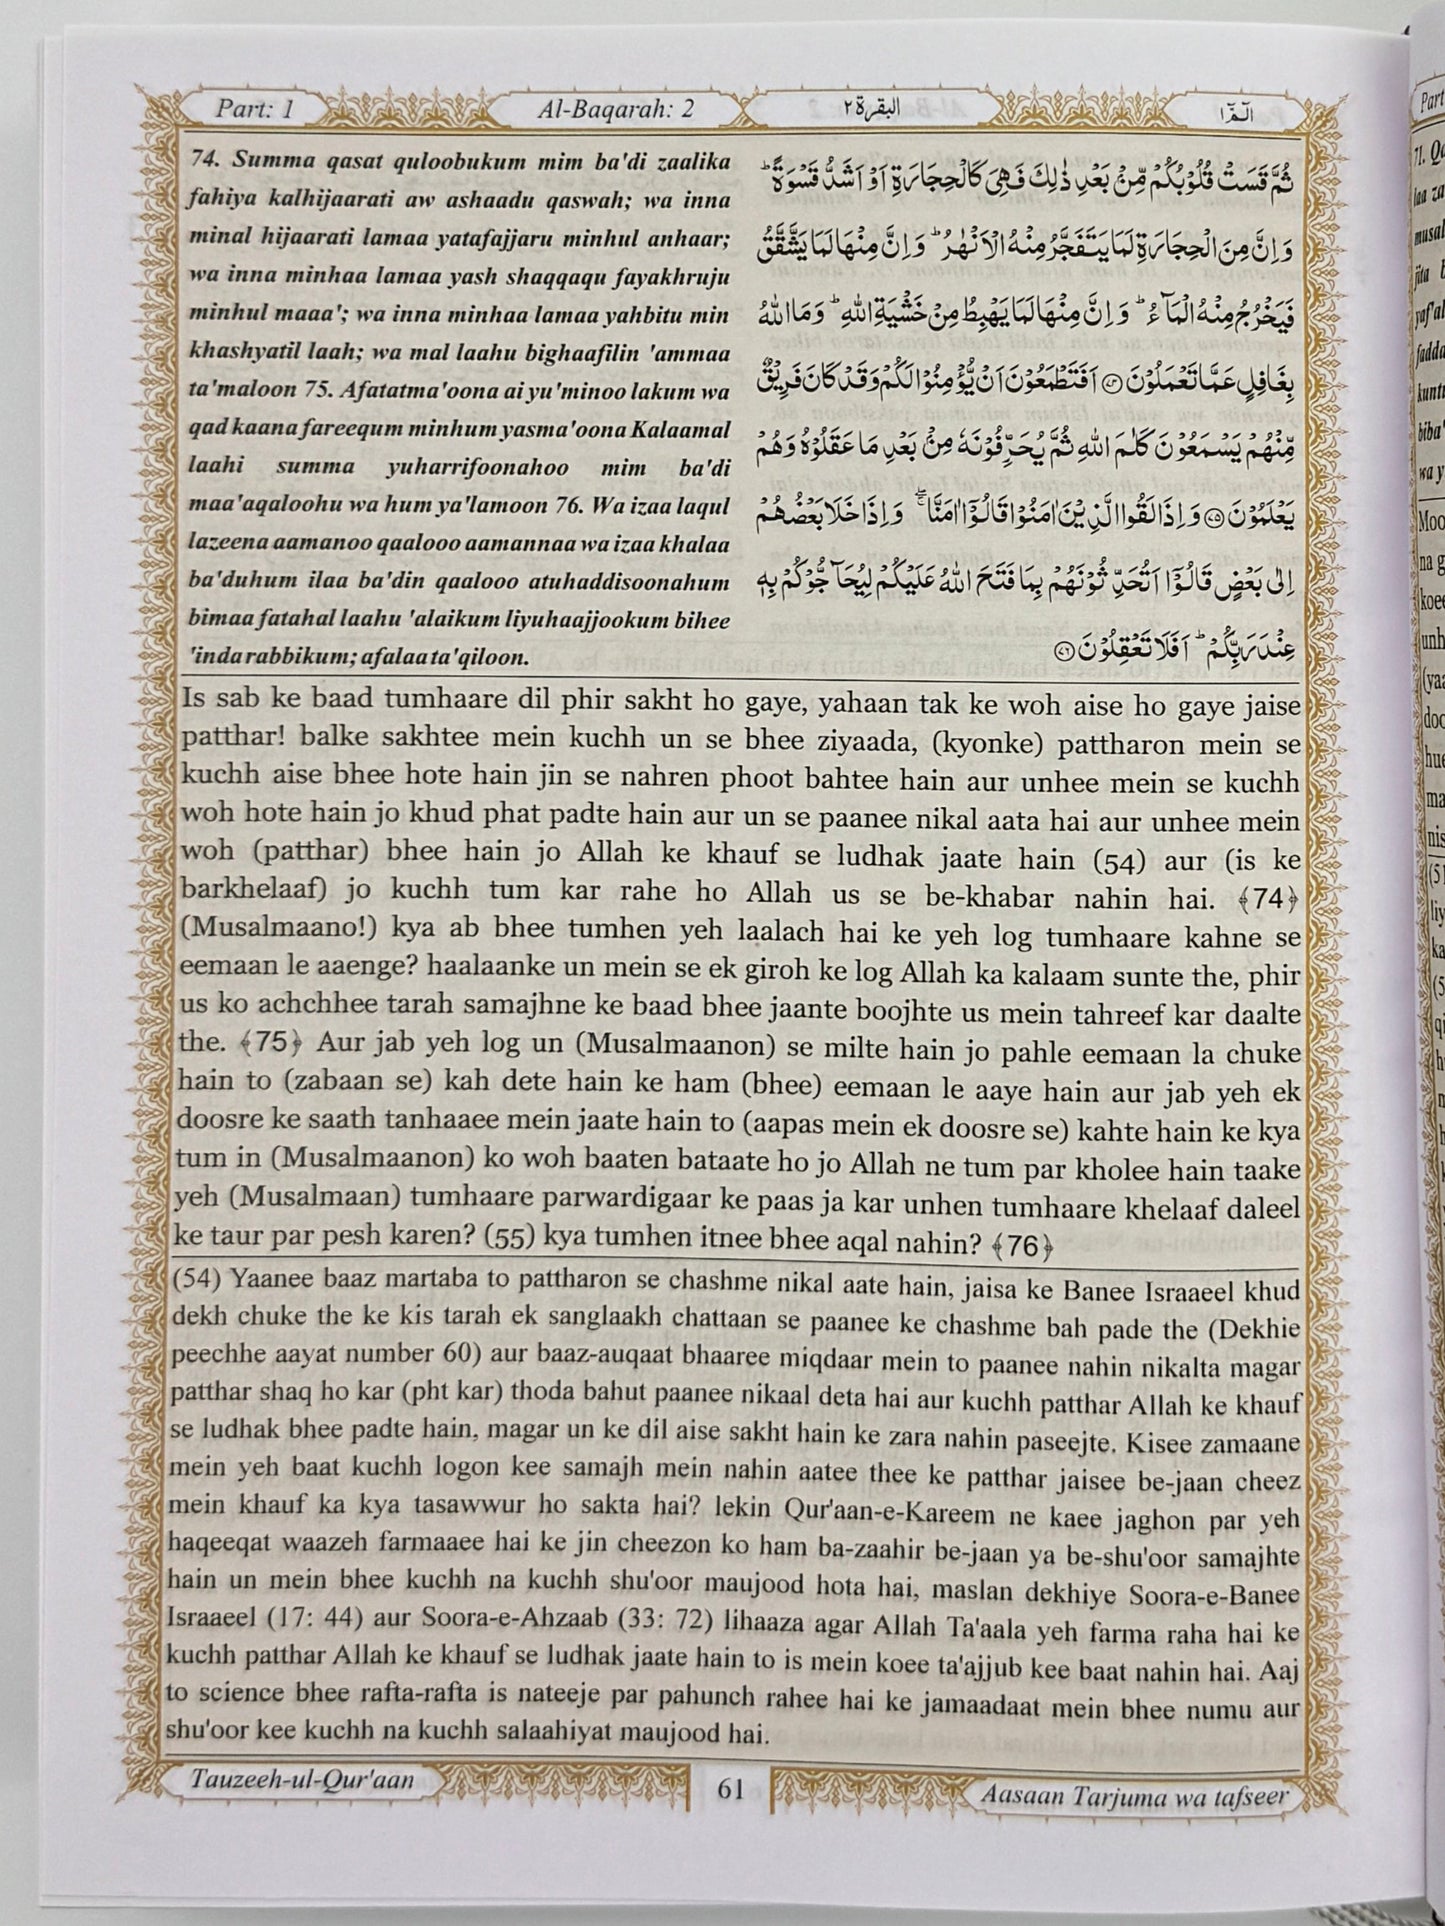 Part: 1
Al-Baqarah: 2
البقرة ٢
الٓمّٓ ١
74. Summa qasat quloobukum mim ba'di zaalika
fahiya kalhijaarati aw ashaadu qaswah; wa inna
minal hijaarati lamaa yatafajjaru minhul anhaar;
wa inna minhaa lamaa yash shaqqaqu fayakhruju
minhul maaa'; wa inna minhaa lamaa yahbitu min
khashyatil laah; wa mal laahu bighaafilin 'ammaa
ta'maloon 75. Afatatma'oona ai yu'minoo lakum wa
qad kaana fareequm minhum yasma'oona Kalaamal
laahi summa yuharrifoonahoo mim ba'di
maa'aqaloohu wa hum ya'lamoon 76. Wa izaa laqul
lazeena aamanoo qaalooo aamannaa wa izaa khalaa
ba'duhum ilaa ba'din qaalooo atuhaddisoonahum
bimaa fatahal laahu 'alaikum liyuhaajjookum bihee
'inda rabbikum; afalaa ta'qiloon.
ثُمَّ قَسَتْ قُلُوْبُكُمْ مِّنْۢ بَعْدِ ذٰلِكَ فَهِىَ كَالْحِجَارَةِ اَوْ اَشَدُّ قَسْوَةً ؕ
وَ اِنَّ مِنَ الْحِجَارَةِ لَمَا يَتَفَجَّرُ مِنْهُ الْاَنْهٰرُ ؕ وَ اِنَّ مِنْهَا لَمَا يَشَّقَّقُ
فَيَخْرُجُ مِنْهُ الْمَآءُ ؕ وَ اِنَّ مِنْهَا لَمَا يَهْبِطُ مِنْ خَشْيَةِ اللّٰهِ ؕ وَ مَا اللّٰهُ
بِغَافِلٍ عَمَّا تَعْمَلُوْنَ ﴿۷۴﴾ اَفَتَطْمَعُوْنَ اَنْ يُّؤْمِنُوْا لَكُمْ وَ قَدْ كَانَ فَرِيْقٌ
مِّنْهُمْ يَسْمَعُوْنَ كَلٰمَ اللّٰهِ ثُمَّ يُحَرِّفُوْنَهٗ مِنْۢ بَعْدِ مَا عَقَلُوْهُ وَ هُمْ
يَعْلَمُوْنَ ﴿۷۵﴾ وَ اِذَا لَقُوا الَّذِيْنَ اٰمَنُوْا قَالُوْۤا اٰمَنَّا ۚۖ وَ اِذَا خَلَا بَعْضُهُمْ
اِلٰى بَعْضٍ قَالُوْۤا اَتُحَدِّثُوْنَهُمْ بِمَا فَتَحَ اللّٰهُ عَلَيْكُمْ لِيُحَآجُّوْكُمْ بِهٖ
عِنْدَ رَبِّكُمْ ؕ اَفَلَا تَعْقِلُوْنَ ﴿۷۶﴾
Is sab ke baad tumhaare dil phir sakht ho gaye, yahaan tak ke woh aise ho gaye jaise
patthar! balke sakhtee mein kuchh un se bhee ziyaada, (kyonke) pattharon mein se
kuchh aise bhee hote hain jin se nahren phoot bahtee hain aur unhee mein se kuchh
woh hote hain jo khud phat padte hain aur un se paanee nikal aata hai aur unhee mein
woh (patthar) bhee hain jo Allah ke khauf se ludhak jaate hain (54) aur (is ke
barkhelaaf) jo kuchh tum kar rahe ho Allah us se be-khabar nahin hai. ﴾74﴿
(Musalmaano!) kya ab bhee tumhen yeh laalach hai ke yeh log tumhaare kahne se
eemaan le aaenge? haalaanke un mein se ek giroh ke log Allah ka kalaam sunte the, phir
us ko achchhee tarah samajhne ke baad bhee jaante boojhte us mein tahreef kar daalte
the. ﴾75﴿ Aur jab yeh log un (Musalmaanon) se milte hain jo pahle eemaan la chuke
hain to (zabaan se) kah dete hain ke ham (bhee) eemaan le aaye hain aur jab yeh ek
doosre ke saath tanhaaee mein jaate hain to (aapas mein ek doosre se) kahte hain ke kya
tum in (Musalmaanon) ko woh baaten bataate ho jo Allah ne tum par kholee hain taake
yeh (Musalmaan) tumhaare parwardigaar ke paas ja kar unhen tumhaare khelaaf daleel
ke taur par pesh karen? (55) kya tumhen itnee bhee aqal nahin? ﴾76﴿
(54) Yaanee baaz martaba to pattharon se chashme nikal aate hain, jaisa ke Banee Israaeel khud
dekh chuke the ke kis tarah ek sanglaakh chattaan se paanee ke chashme bah pade the (Dekhie
peechhe aayat number 60) aur baaz-auqaat bhaaree miqdaar mein to paanee nahin nikalta magar
patthar shaq ho kar (pht kar) thoda bahut paanee nikaal deta hai aur kuchh patthar Allah ke khauf
se ludhak bhee padte hain, magar un ke dil aise sakht hain ke zara nahin paseejte. Kisee zamaane
mein yeh baat kuchh logon kee samajh mein nahin aatee thee ke patthar jaisee be-jaan cheez
mein khauf ka kya tasawwur ho sakta hai? lekin Qur'aan-e-Kareem ne kaee jaghon par yeh
haqeeqat waazeh farmaaee hai ke jin cheezon ko ham ba-zaahir be-jaan ya be-shu'oor samajhte
hain un mein bhee kuchh na kuchh shu'oor maujood hota hai, maslan dekhiye Soora-e-Banee
Israaeel (17: 44) aur Soora-e-Ahzaab (33: 72) lihaaza agar Allah Ta'aala yeh farma raha hai ke
kuchh patthar Allah ke khauf se ludhak jaate hain to is mein koee ta'ajjub kee baat nahin hai. Aaj
to science bhee rafta-rafta is nateeje par pahunch rahee hai ke jamaadaat mein bhee numu aur
shu'oor kee kuchh na kuchh salaahiyat maujood hai.
Tauzeeh-ul-Qur'aan
61
Aasaan Tarjuma wa tafseer